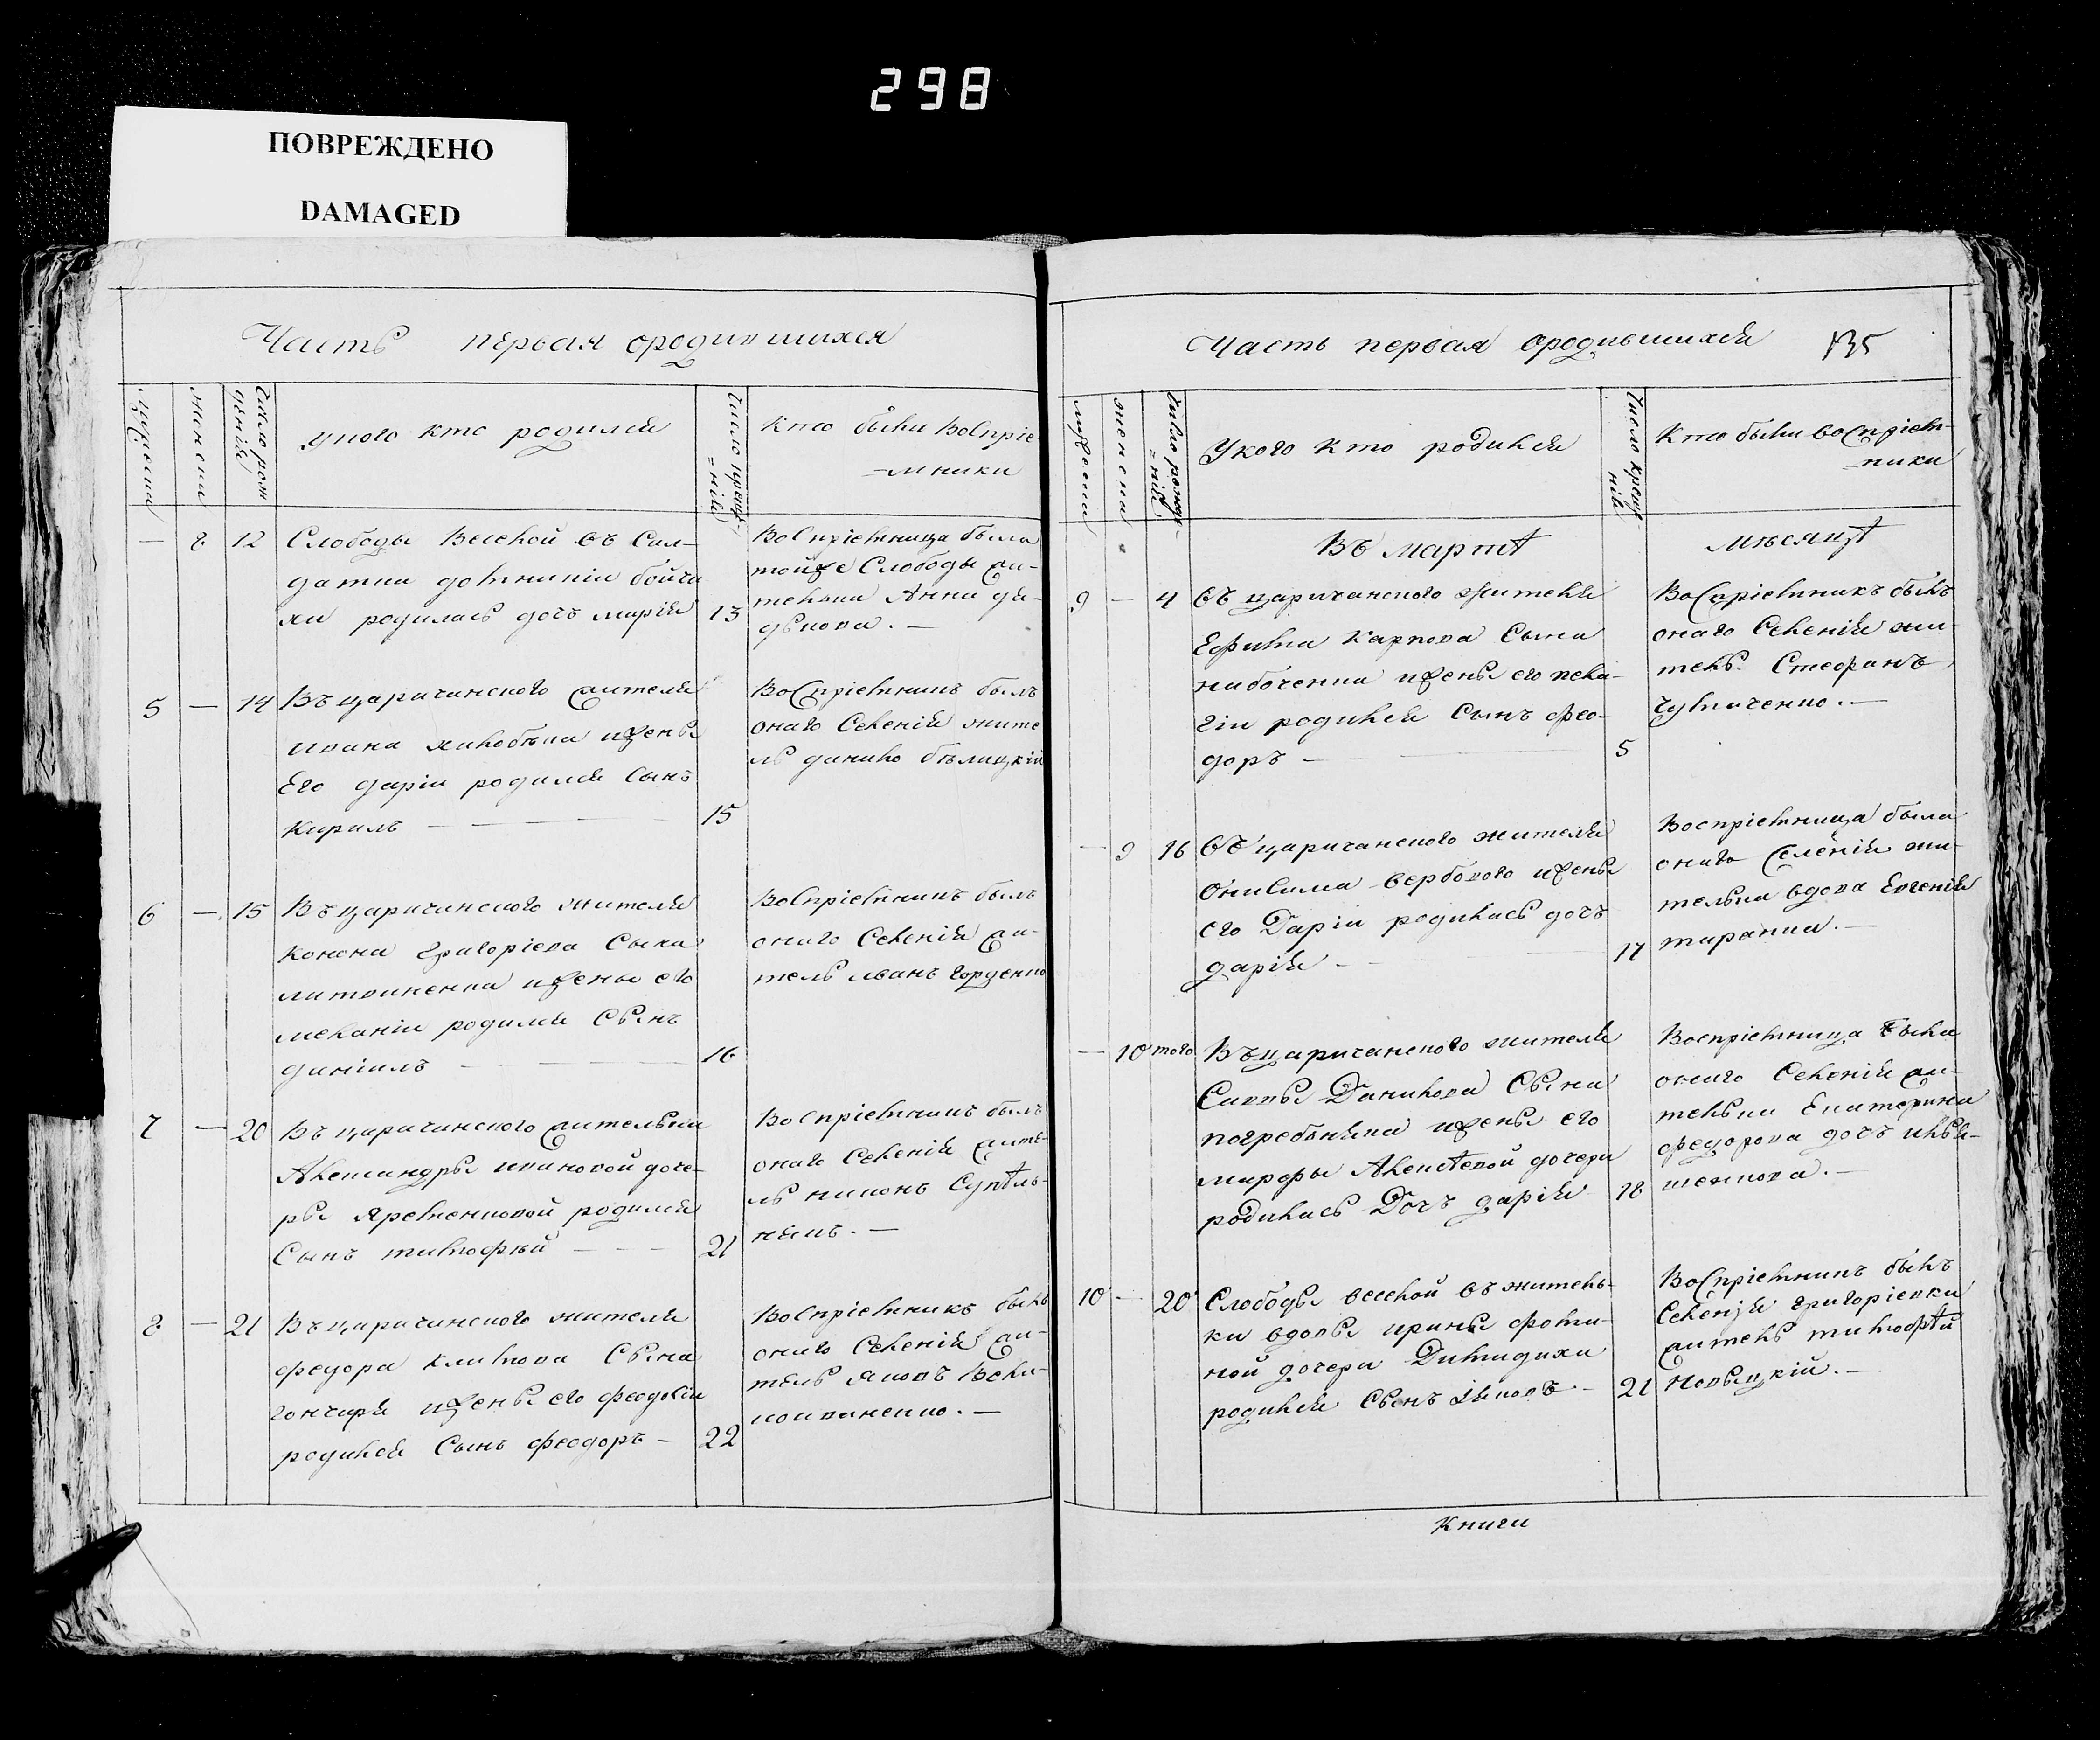 298
ПОВРЕЖДЕНО
DAMAGED
Часть первая ородившихся
мужеска
женска
Число рож
деній
Уково кто родился
Число креще=
=нія
кто были Воспріе
-мники
— 8 12
Слободы Веской въ Сол-
датки домникіи бойчи
хи родилась дочъ марія
13
Воспріемница была
тойже Слободы жи-
телька Анна дя-
дькова. —
5 — 14
Въ царичанского жителя
ивана жилобока ижены
Его дарія родился Сынъ
Кирилъ —
15
Воспріемникъ былъ
онаго Селенія жите
ль данило бѣлицкій
6 — 15
Въ царичанского жителя
Конона Григоріева Сына
литвиненка ижены его
меланіи родился Сынъ
даніилъ —
16
Воспріемникъ былъ
онаго Селенія жи-
тель иванъ гордѣенко
7 — 20
Въ царичанского жительки
Александры ивановой доче-
ры яременковой родился
Сынъ тимофѣй —
21
Воспріемникъ былъ
онаго Селенія жите-
ль никонъ
8 — 21
Въ царичанского жителя
федора климова Сына
гончаря ижены его феодосіи
родился Сынъ феодоръ —
22
Воспріемникъ былъ
онаго Селенія жи-
тель яковъ
Часть первая ородившихся 135
мужеска
женска
Число рожде-
=нія
Укого кто родился
Число креще
нія
Кто были воспріем-
-ники
Въ мартѣ мѣсяцѣ
9 — 4
Въ царичанского Жителя
Ефима Карпова Сына
набоченка ижены его пела-
гіи родился Сынъ фео-
доръ —
5
Воспріемникъ былъ
онаго Селенія жи-
тель Стефанъ
чумаченко. —
— 9 16
Въ царичанского жителя
Онисима вербового ижены
его Даріи родилась дочъ
дарія —
17
Воспріемница была
онаго Селенія жи-
телька вдова Евгенія
таранка. —
— 10 того
Въ царичанского жителя
Саввы Данилова Сына
погребняка ижены его
марфы Алексѣевой дочери
родилась Дочъ дарія
18
Воспріемница была
онаго Селенія жи-
телька Екатерина
федорова дочъ илья-
шенкова. —
10 — 20
Слободы веской въ житель-
ки вдовы ирины фоми-
ной дочери Дитидихи
родился Сынъ Яковъ —
21
Воспріемникъ былъ
Селенія григоріевки
житель тимофѣй
Новицкій. —
Книги